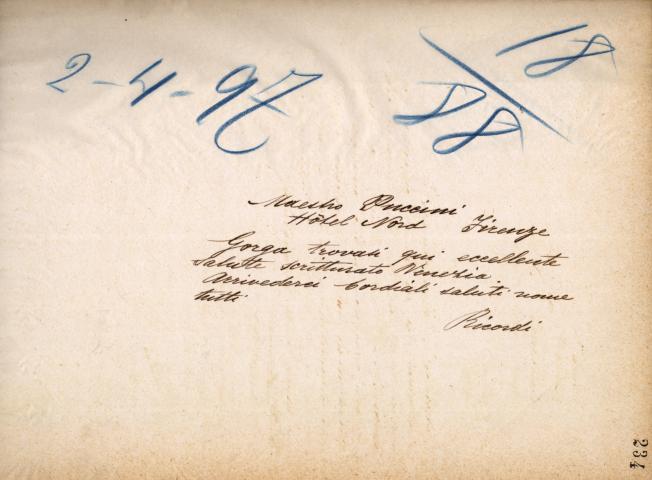 2-4-97
18
88
Maestro Puccini
Hôtel Nord Firenze
Gorga trovasi qui eccellente
salute scritturato Venezia
Arrivederci Cordiali saluti nome
tutti
Ricordi
234